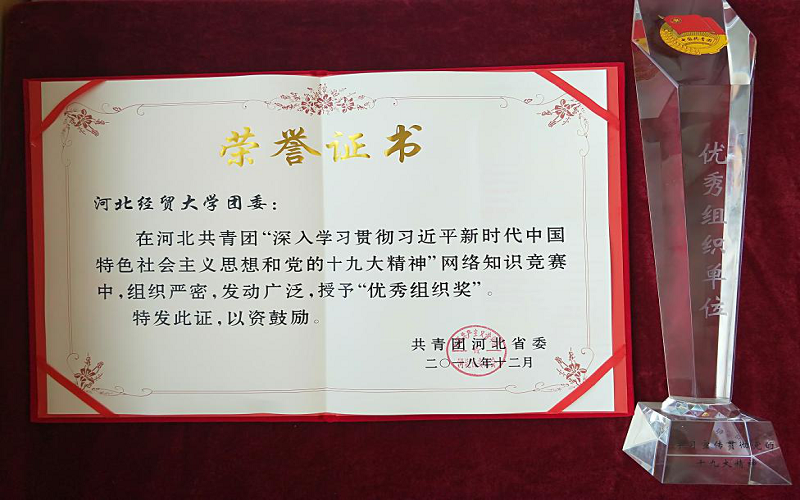 荣誉证书
河北经贸大学团委：
在河北共青团“深入学习贯彻习近平新时代中国
特色社会主义思想和党的十九大精神”网络知识竞赛
中，组织严密，发动广泛，授予“优秀组织奖”。
特发此证，以资鼓励。
共青团河北省委
二〇一八年十二月
优秀组织单位
十九大精神